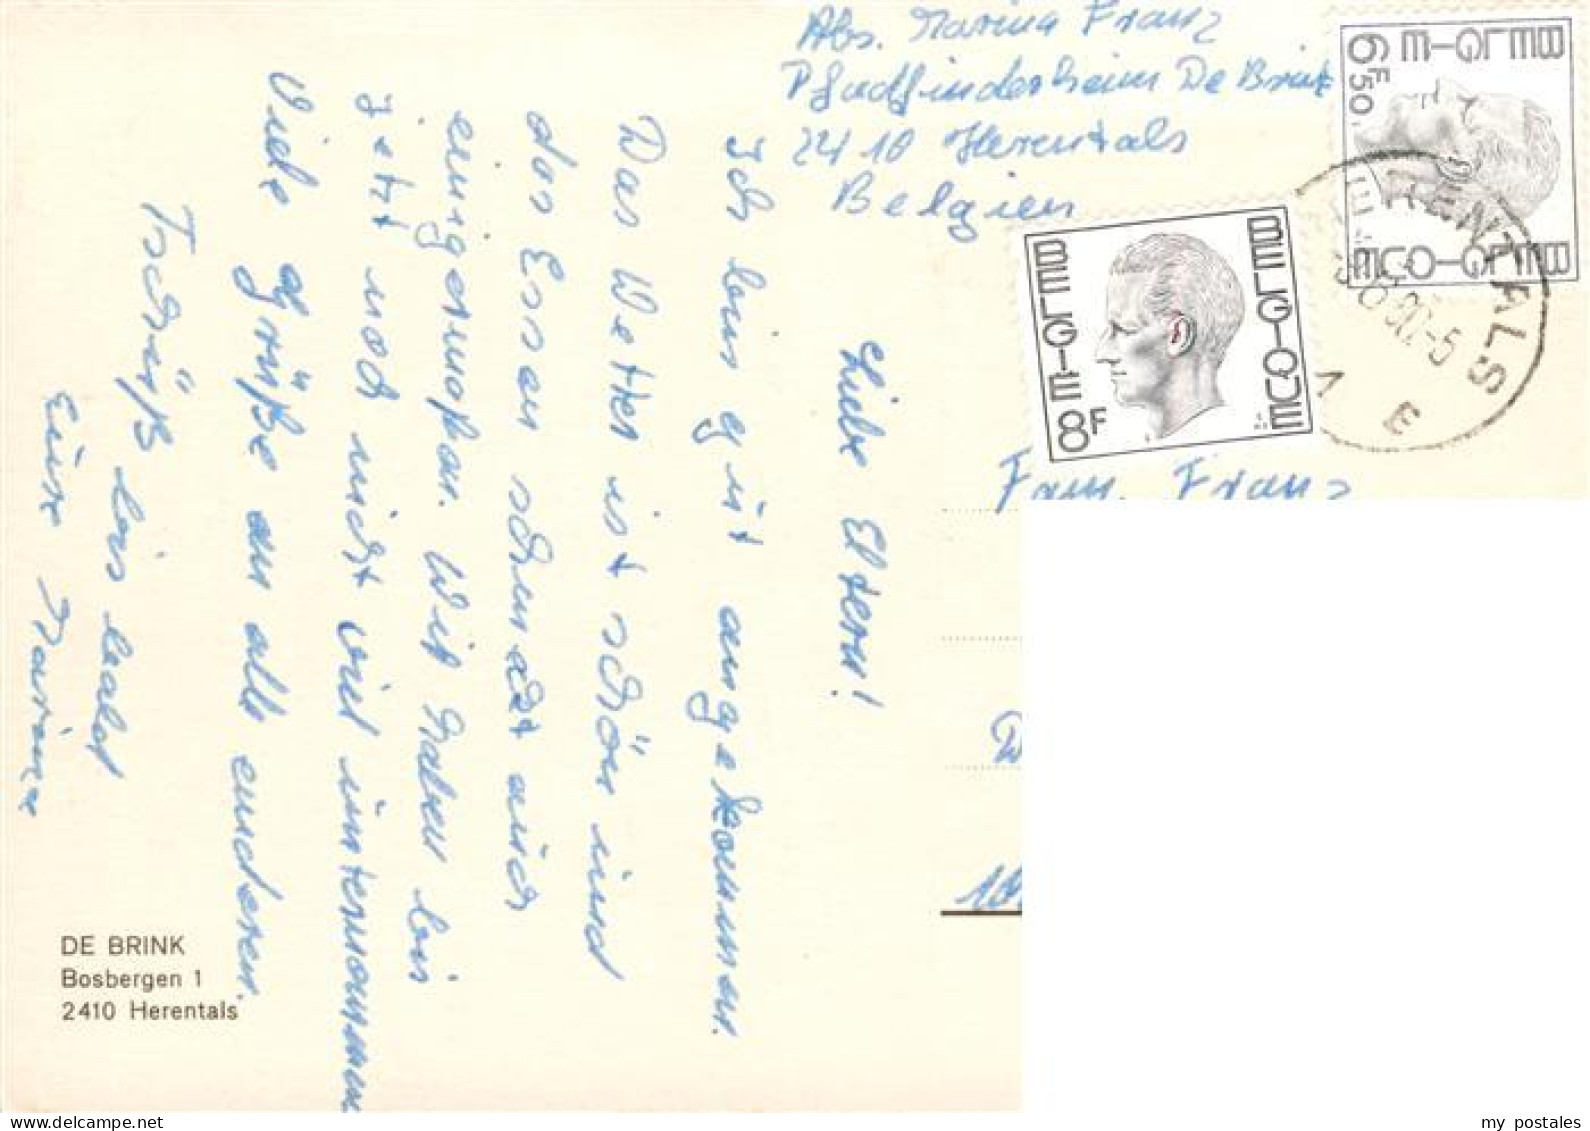 Abs. Marina Franz
Pfadfinderheim De Brink
2410 Herentals
Belgien
BELGIË BELGIQUE
6F50
BELGIË BELGIQUE
8F
HERENTALS
Fam. Franz
Liebe Eltern!
Ich bin gut angekommen.
Das Wetter ist schön und
das Essen schmeckt auch
einigermaßen. Wir haben bis
jetzt noch nicht viel unternommen
Viele Grüße an alle anderen.
Tschüß bis bald
Eure Marina
DE BRINK
Bosbergen 1
2410 Herentals
my postales